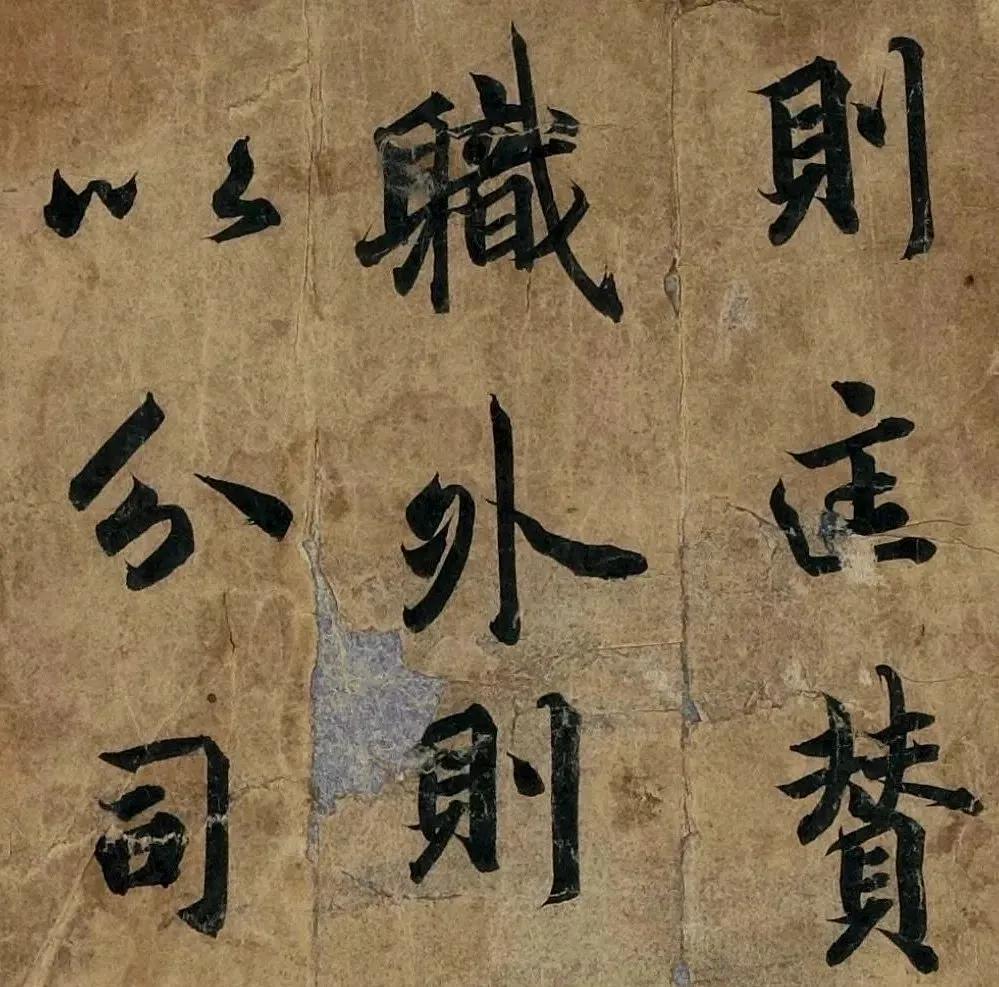 則匡賛
職外則
以分司